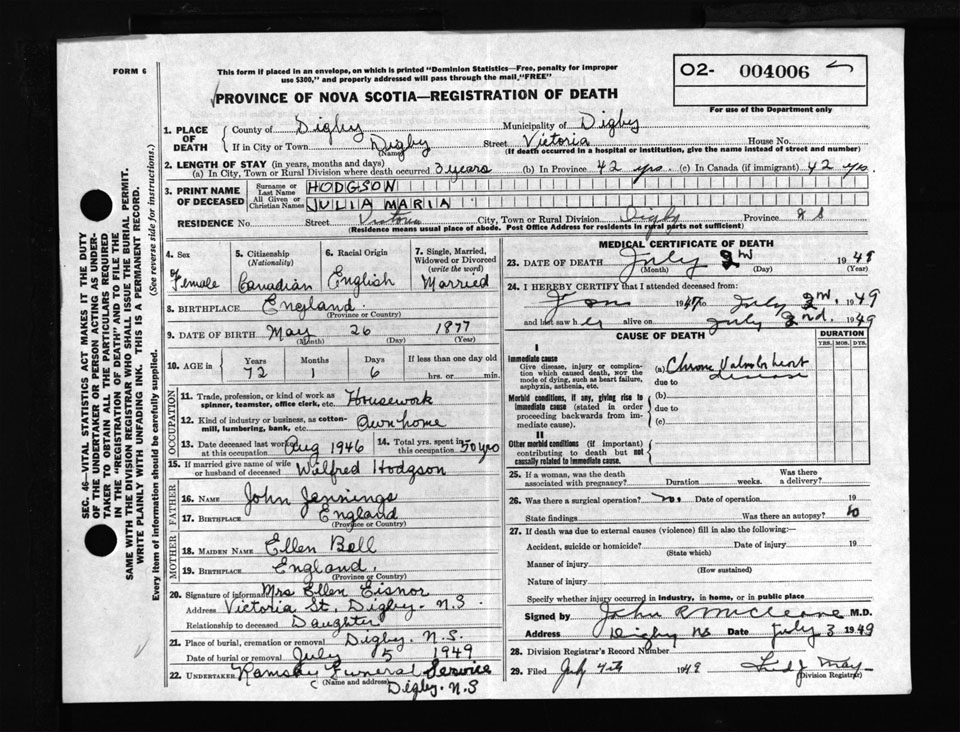 FORM 6
This form if placed in an envelope, on which is printed "Dominion Statistics—Free, penalty for improper
use $300," and properly addressed will pass through the mail, "FREE"
O2- 004006
For use of the Department only
PROVINCE OF NOVA SCOTIA—REGISTRATION OF DEATH
SEC. 46—VITAL STATISTICS ACT MAKES IT THE DUTY
OF THE UNDERTAKER OR PERSON ACTING AS UNDER-
TAKER TO OBTAIN ALL THE PARTICULARS REQUIRED
IN THE "REGISTRATION OF DEATH" AND TO FILE THE
SAME WITH THE DIVISION REGISTRAR WHO SHALL ISSUE THE BURIAL PERMIT.
WRITE PLAINLY WITH UNFADING INK. THIS IS A PERMANENT RECORD.
Every item of information should be carefully supplied. (See reverse side for instructions.)
1. PLACE OF DEATH County of Digby Municipality of Digby
If in City or Town Digby (Name) Street Victoria House No.
(If death occurred in a hospital or institution, give the name instead of street and number)
2. LENGTH OF STAY (in years, months and days)
(a) In City, Town or Rural Division where death occurred 3 years (b) In Province 42 yrs. (c) In Canada (if immigrant) 42 yrs.
3. PRINT NAME OF DECEASED Surname or Last Name HODGSON
All Given or Christian Names JULIA MARIA
RESIDENCE No. Street Victoria City, Town or Rural Division Digby Province
(Residence means usual place of abode. Post Office Address for residents in rural parts not sufficient)
4. Sex Female
5. Citizenship (Nationality) Canadian
6. Racial Origin English
7. Single, Married, Widowed or Divorced (write the word) Married
8. BIRTHPLACE England.
(Province or Country)
9. DATE OF BIRTH May 26 1877
(Month) (Day) (Year)
10. AGE in Years 72 Months 1 Days 6 If less than one day old
hrs. or min.
OCCUPATION
11. Trade, profession, or kind of work as spinner, teamster, office clerk, etc. Housework
12. Kind of industry or business, as cotton-mill, lumbering, bank, etc. Own home
13. Date deceased last worked at this occupation Aug 1946 14. Total yrs. spent in this occupation 50 yrs
15. If married give name of wife or husband of deceased Wilfred Hodgson
FATHER
16. NAME John Jennings
17. BIRTHPLACE England
(Province or Country)
MOTHER
18. MAIDEN NAME Ellen Bell
19. BIRTHPLACE England.
(Province or Country)
20. Signature of informant Mrs Ellen Eisnor
Address Victoria St, Digby. N.S.
Relationship to deceased Daughter
21. Place of burial, cremation or removal Digby. N.S.
Date of burial or removal July 5 1949
22. UNDERTAKER Ramsay Funeral Service
(Name and address) Digby. N.S
MEDICAL CERTIFICATE OF DEATH
23. DATE OF DEATH July 2nd 194
(Month) (Day) (Year)
24. I HEREBY CERTIFY that I attended deceased from:
Jan 1947 to July 2nd, 1949
and last saw her alive on July 2nd. 1949
CAUSE OF DEATH
DURATION
YRS. MOS. DYS.
I
Immediate cause
Give disease, injury or complication which caused death, not the mode of dying, such as heart failure, asphyxia, asthenia, etc.
(a) Chronic Valvular heart disease
due to
Morbid conditions, if any, giving rise to immediate cause (stated in order proceeding backwards from immediate cause).
(b)
due to
(c)
II
Other morbid conditions (if important) contributing to death but not causally related to immediate cause.
25. If a woman, was the death associated with pregnancy? Duration weeks. Was there a delivery?
26. Was there a surgical operation? no. Date of operation 19
State findings Was there an autopsy?
27. If death was due to external causes (violence) fill in also the following:—
Accident, suicide or homicide? Date of injury 19
(State which)
Manner of injury
(How sustained)
Nature of injury
Specify whether injury occurred in industry, in home, or in public place
Signed by John R McCleave M.D.
Address Digby NS Date July 3 1949
28. Division Registrar's Record Number
29. Filed July 4th 1949
(Division Registrar)